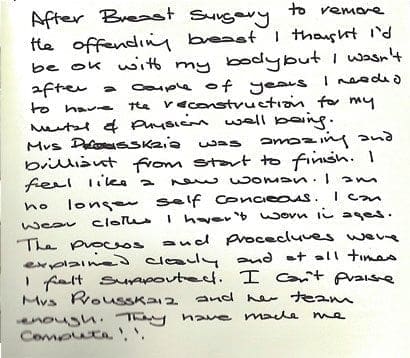 After Breast Surgery to remove
the offending breast I thought I'd
be ok with my body but I wasn't
after a couple of years I needed
to have the reconstruction for my
mental & physical well being.
Mrs Prousskaia was amazing and
brilliant from start to finish. I
feel like a new woman. I am
no longer self concieous. I can
wear clothes I haven't worn in ages.
The process and procedures were
explained clearly and at all times
I felt supported. I can't praise
Mrs Prousskaia and her team
enough. They have made me
complete!!